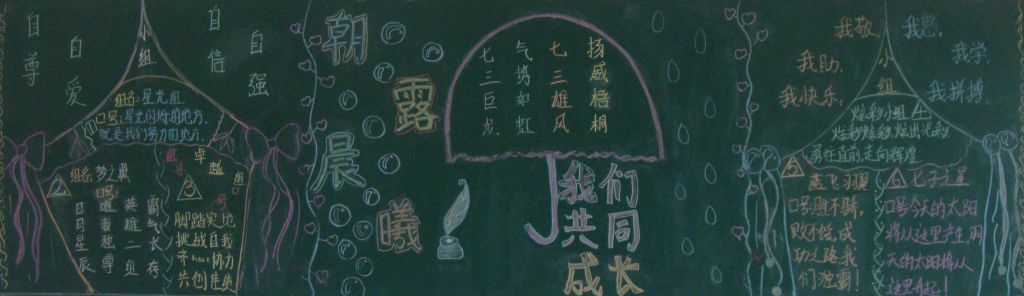 自尊
自爱
自信
自强
小组
组名:星光组
口号:星光闪烁的地方,
就是我们努力的地方
组名:梦之翼
日月星辰
唯我独尊
英雄二组
霸气长存
卓越组
脚踏实地
挑战自我
齐心协力
共创佳绩
朝露晨曦
扬威梧桐
七三雄风
气势如虹
七三巨龙
我们
共同
成长
我敬,
我思,
我助,
我学,
我快乐,
我拼搏
小组
炫彩小组
炫彩炫彩炫出光彩
勇往直前,走向辉煌
燕飞羽翼
口号胜不骄,
败不馁,成
功之路我
们独霸!
七子之星
口号今天的太阳
将从这里产生,明
天的太阳将从
这里升起!